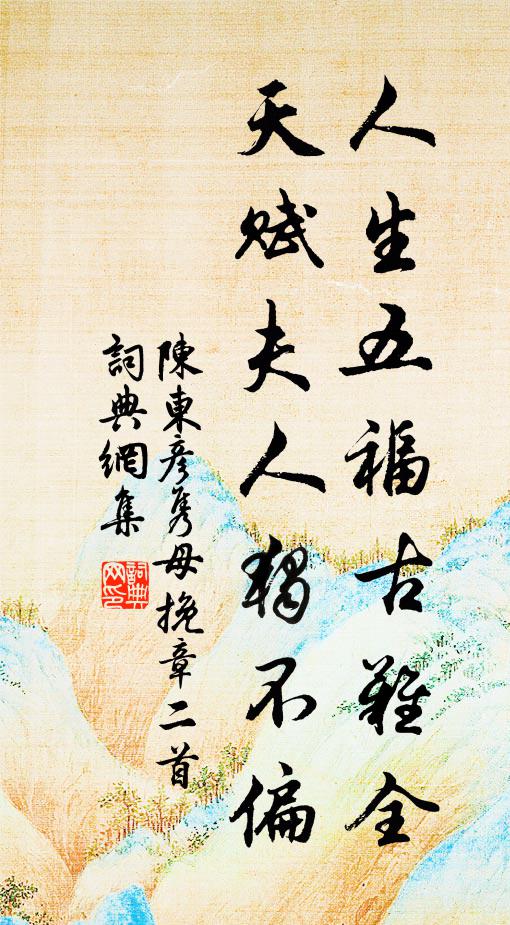 人生五福古難全
天賦夫人獨不偏
陳東彥隽母挽章二首
詞典網集
詞典网印